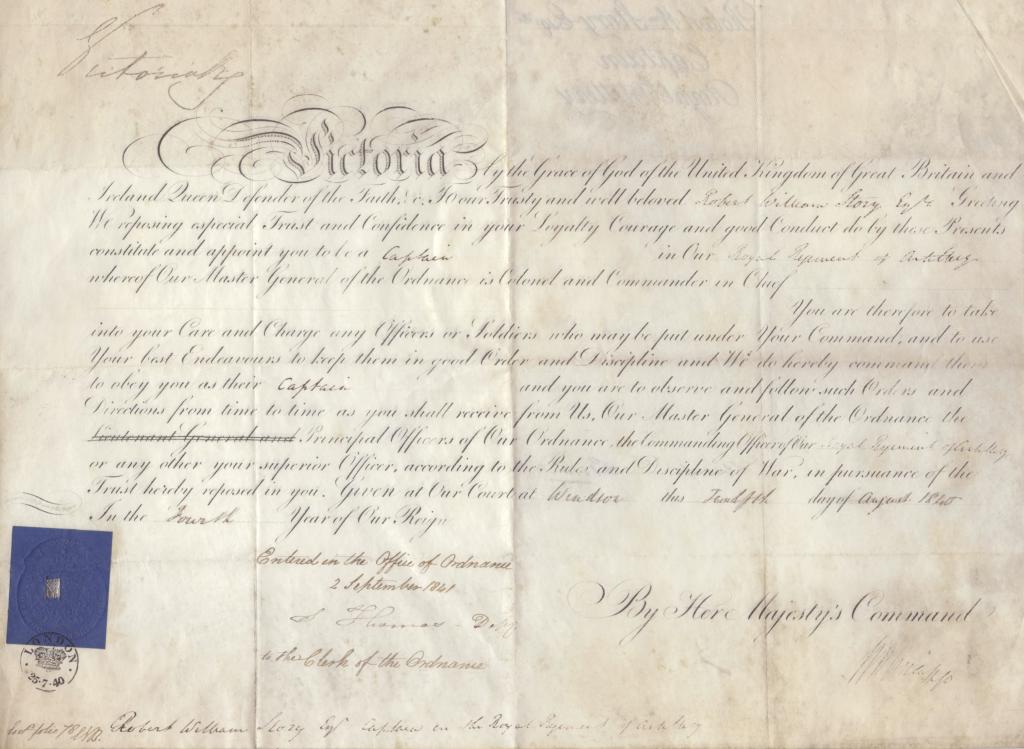 Victoria R
Victoria by the Grace of God of the United Kingdom of Great Britain and
Ireland Queen Defender of the Faith &c. To our Trusty and well beloved Robert William Story Esqre Greeting
We reposing especial Trust and Confidence in your Loyalty Courage and good Conduct do by these Presents
constitute and appoint you to be a Captain in Our Royal Regiment of Artillery
whereof Our Master General of the Ordnance is Colonel and Commander in Chief
You are therefore to take
into your Care and Charge any Officers or Soldiers who may be put under Your Command, and to use
Your best Endeavours to keep them in good Order and Discipline and We do hereby command them
to obey you as their Captain and you are to observe and follow such Orders and
Directions from time to time as you shall receive from Us, Our Master General of the Ordnance the
Lieutenant General and Principal Officers of Our Ordnance, the Commanding Officer of Our Royal Regiment of Artillery
or any other your superior Officer, according to the Rules and Discipline of War, in pursuance of the
Trust hereby reposed in you. Given at Our Court at Windsor this Twelfth day of August 1840
In the Fourth Year of Our Reign
Entered in the Office of Ordnance
2 September 1841
S Thomas
to the Clerk of the Ordnance
By Her Majesty's Command
LONDON
25·7·40
Robert William Story Esqr Captain in the Royal Regiment of Artillery